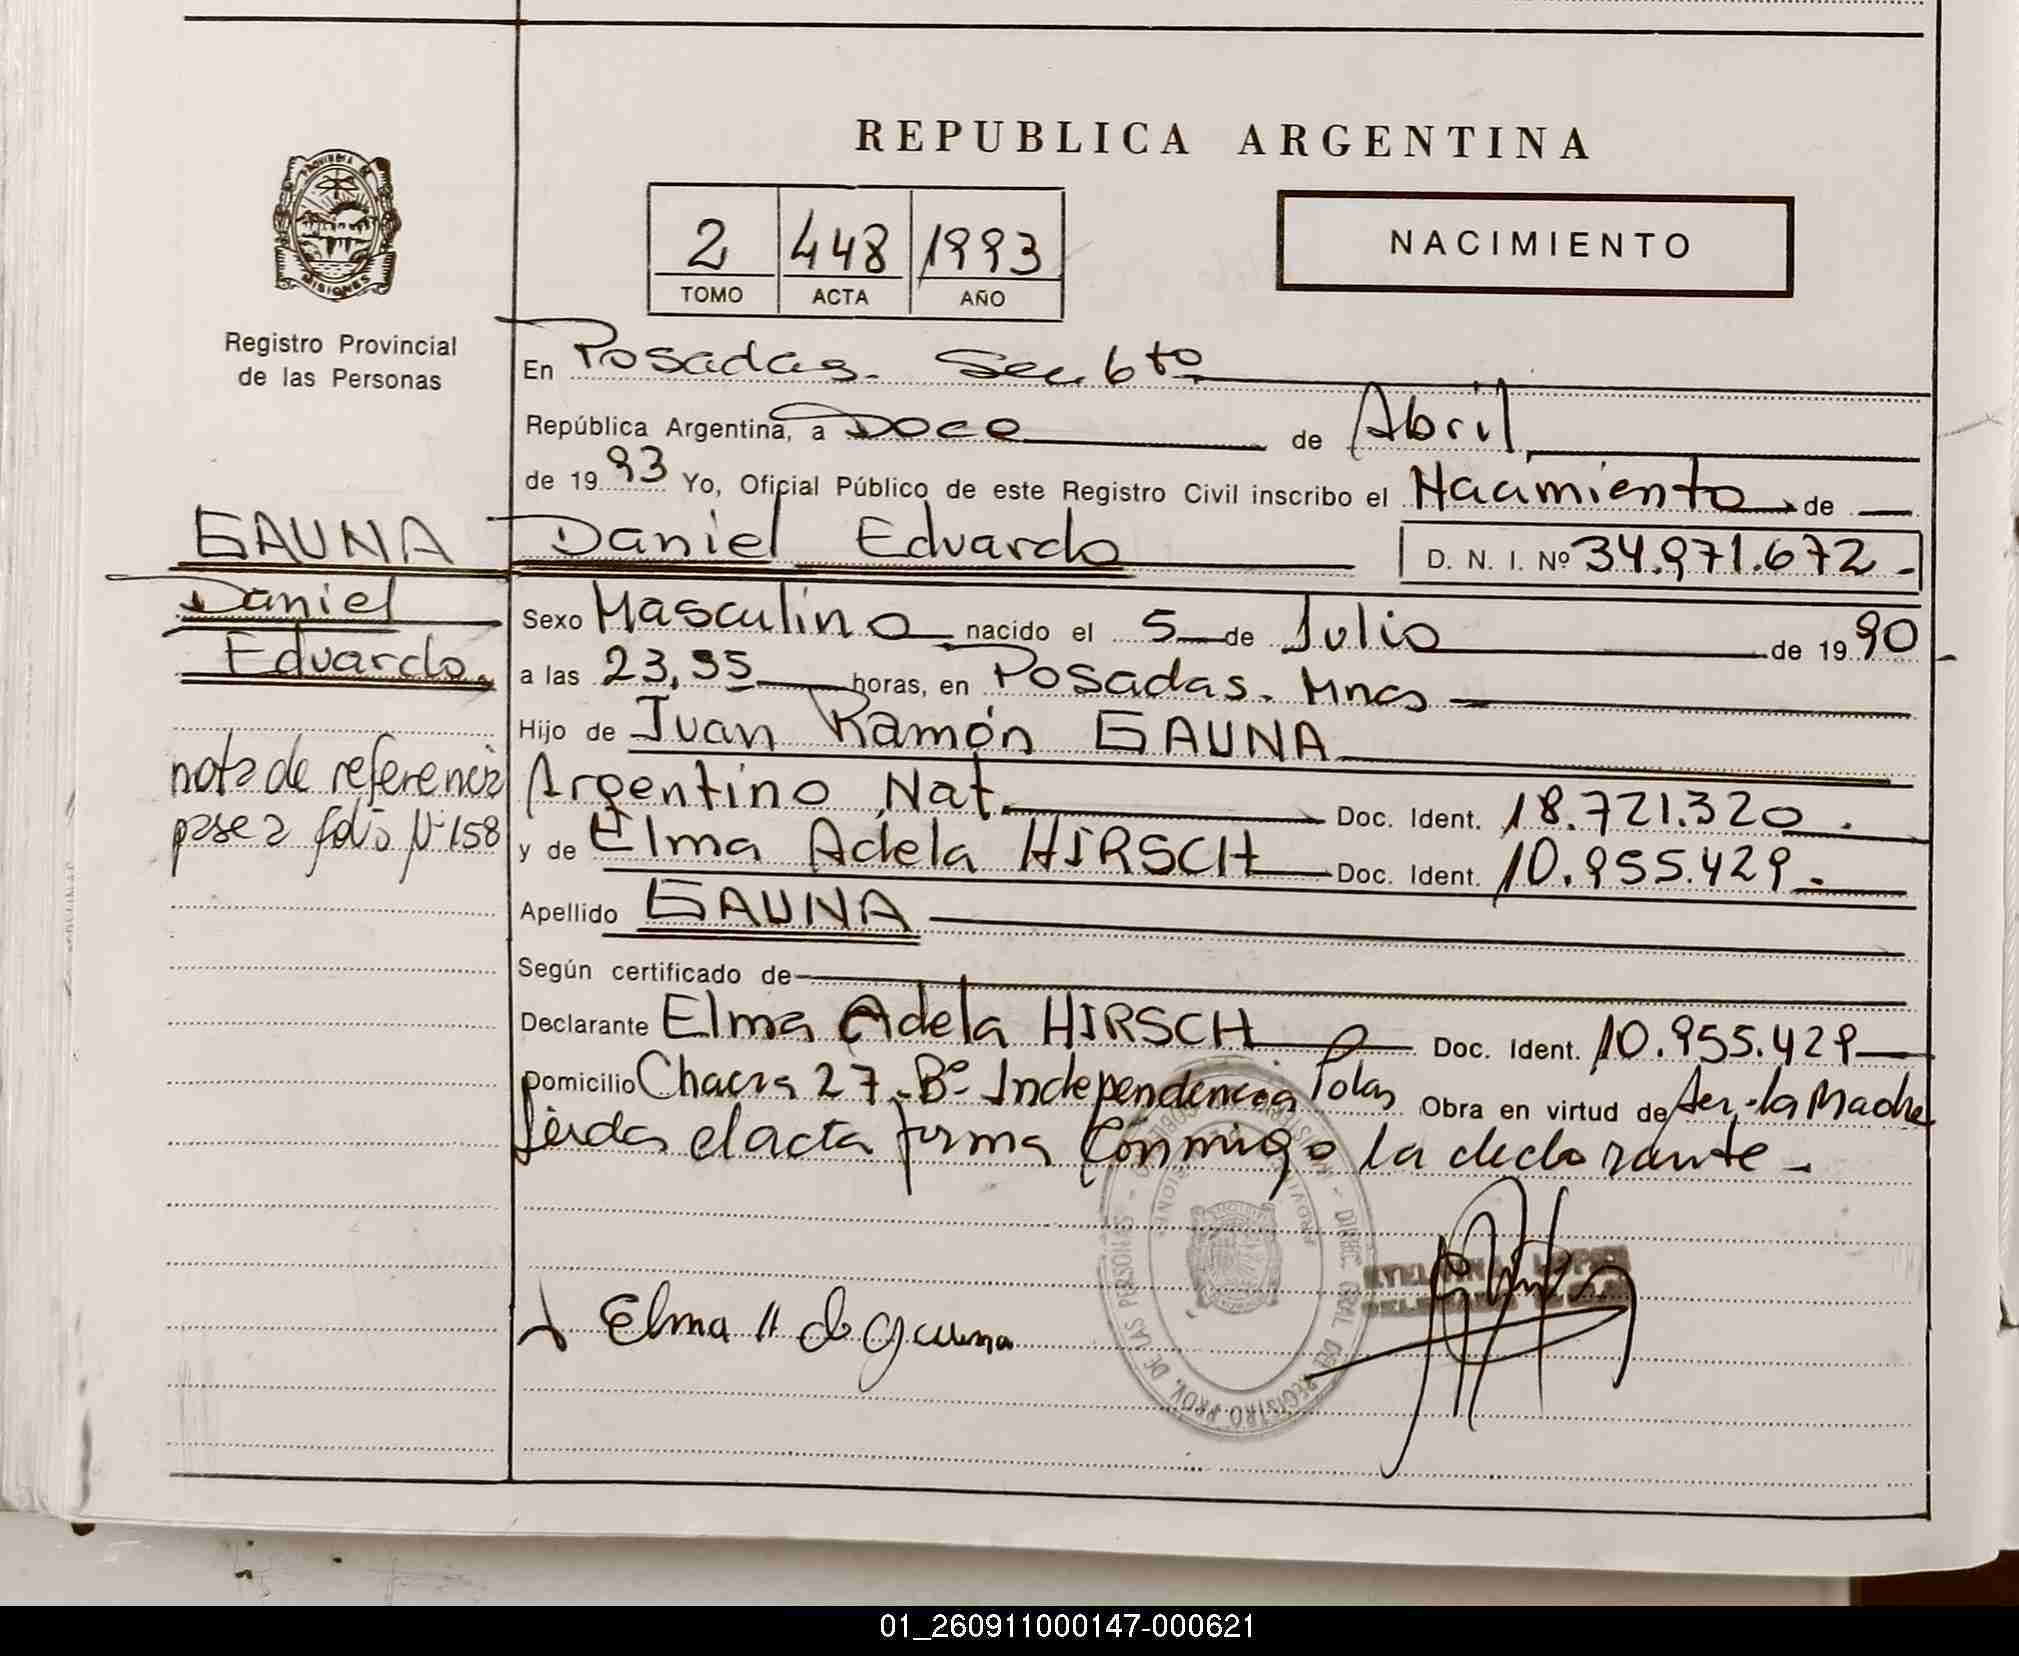 REPUBLICA ARGENTINA
2 448 1993
TOMO ACTA AÑO
NACIMIENTO
PROVINCIA DE MISIONES
Registro Provincial
de las Personas
En Posadas. Sec. 6to
República Argentina, a Doce de Abril
de 1993 Yo, Oficial Público de este Registro Civil inscribo el Nacimiento de
GAUNA
Daniel
Eduardo.
Daniel Eduardo D. N. I. Nº 34.971.672.-
Sexo Masculino nacido el 5 de Julio de 1990
a las 23,35 horas, en Posadas. Mnes
Hijo de Juan Ramón GAUNA
Argentino Nat. Doc. Ident. 18.721.320.
y de Elma Adela HIRSCH Doc. Ident. 10.955.429.-
nota de referencia
pase a folio Nº 158
Apellido GAUNA
Según certificado de
Declarante Elma Adela HIRSCH Doc. Ident. 10.955.429
Domicilio Chacra 27. Bº Independencia Pdas Obra en virtud de Ser la Madre
Leida el acta firma conmigo la declarante.
Elma H de Gauna
LOPEZ
DIREC. GRAL. DEL REGISTRO PROV. DE LAS PERSONAS
01_260911000147-000621